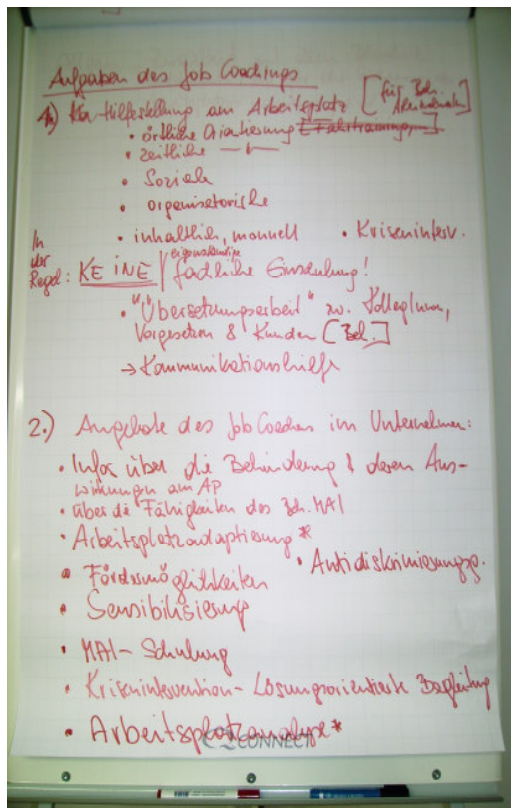 Aufgaben des Job Coachings
1.) Hilfestellung am Arbeitsplatz [für Beh.
• örtliche Orientierung [Fahrtraining, ]
• zeitliche
• Soziale
• organisatorische
• inhaltlich, manuell • Kriseninterv.
In der Regel: KEINE eigenständige fachliche Einschulung!
• "Übersetzungsarbeit" zw. KollegInnen,
Vorgesetzten & Kunden [Beh.]
→ Kommunikationshilfe
2.) Angebote des Job Coaches im Unternehmen:
• Infos über die Behinderung & deren Aus-
wirkungen am AP
• über die Fähigkeiten des Beh. MAI
• Arbeitsplatzadaptierung *
• Antidiskriminierungsg.
• Fördermöglichkeiten
• Sensibilisierung
• MAI - Schulung
• Krisenintervention - Lösungsorientierte Begleitung
• Arbeitsplatzanalyse *
CONNECT